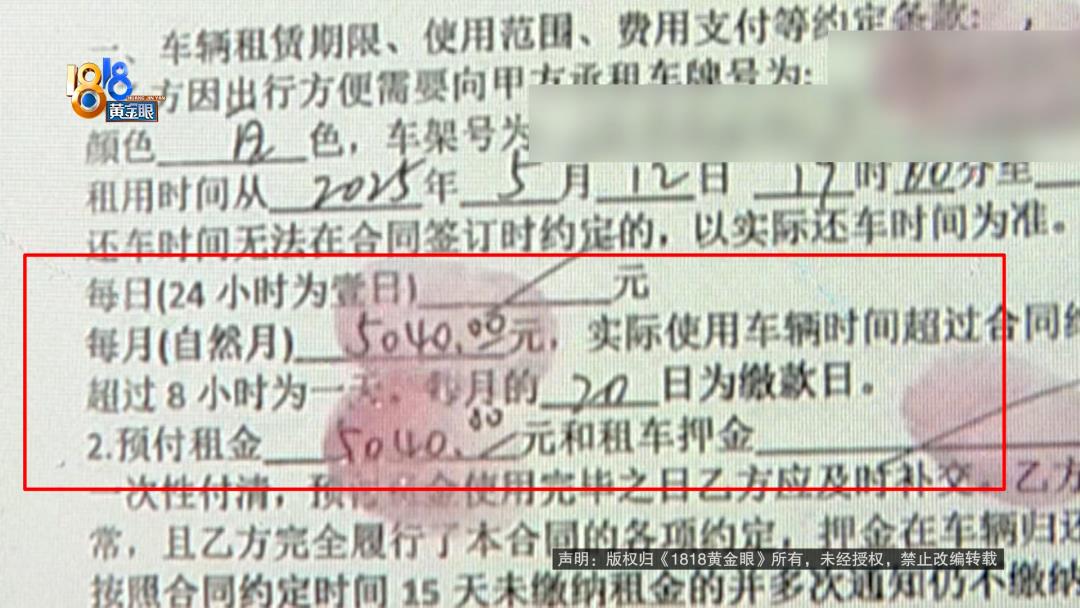 一、车辆租赁期限、使用范围、费用支付等约定条款:
1818
黄金眼
方因出行方便需要向甲方承租车牌号为:
颜色 白 色，车架号为
租用时间从 2025 年 5 月 12 日 17 时 00 分至
还车时间无法在合同签订时约定的，以实际还车时间为准。
每日(24 小时为壹日) 元
每月(自然月) 5040.00 元，实际使用车辆时间超过合同约
超过 8 小时为一天。每月的 20 日为缴款日。
2.预付租金 5040.00 元和租车押金
一次性付清，预付租金使用完毕之日乙方应及时补交。乙方
常，且乙方完全履行了本合同的各项约定，押金在车辆归还
声明：版权归《1818黄金眼》所有，未经授权，禁止改编转载
按照合同约定时间 15 天未缴纳租金的并多次通知仍不缴纳